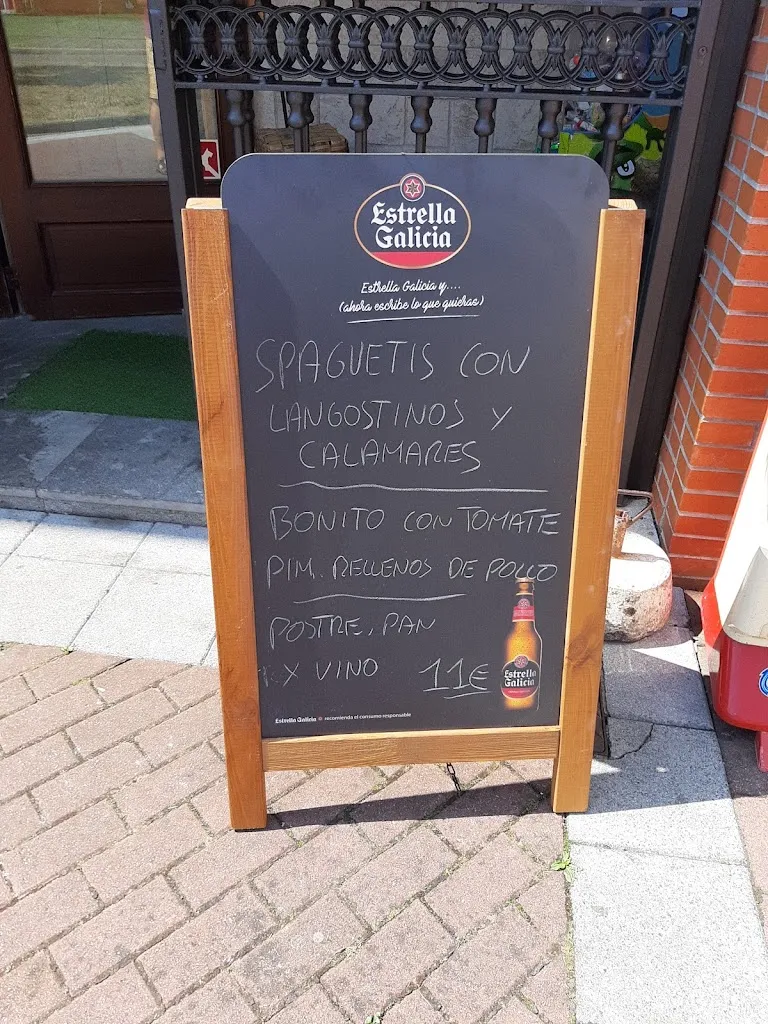 Estrella
Galicia
Estrella Galicia y....
(ahora escribe lo que quieras)
SPAGUETIS CON
LANGOSTINOS Y
CALAMARES
BONITO CON TOMATE
PIM. RELLENOS DE POLLO
POSTRE, PAN
Y VINO 11€
Estrella
Galicia
Estrella Galicia recomienda el consumo responsable